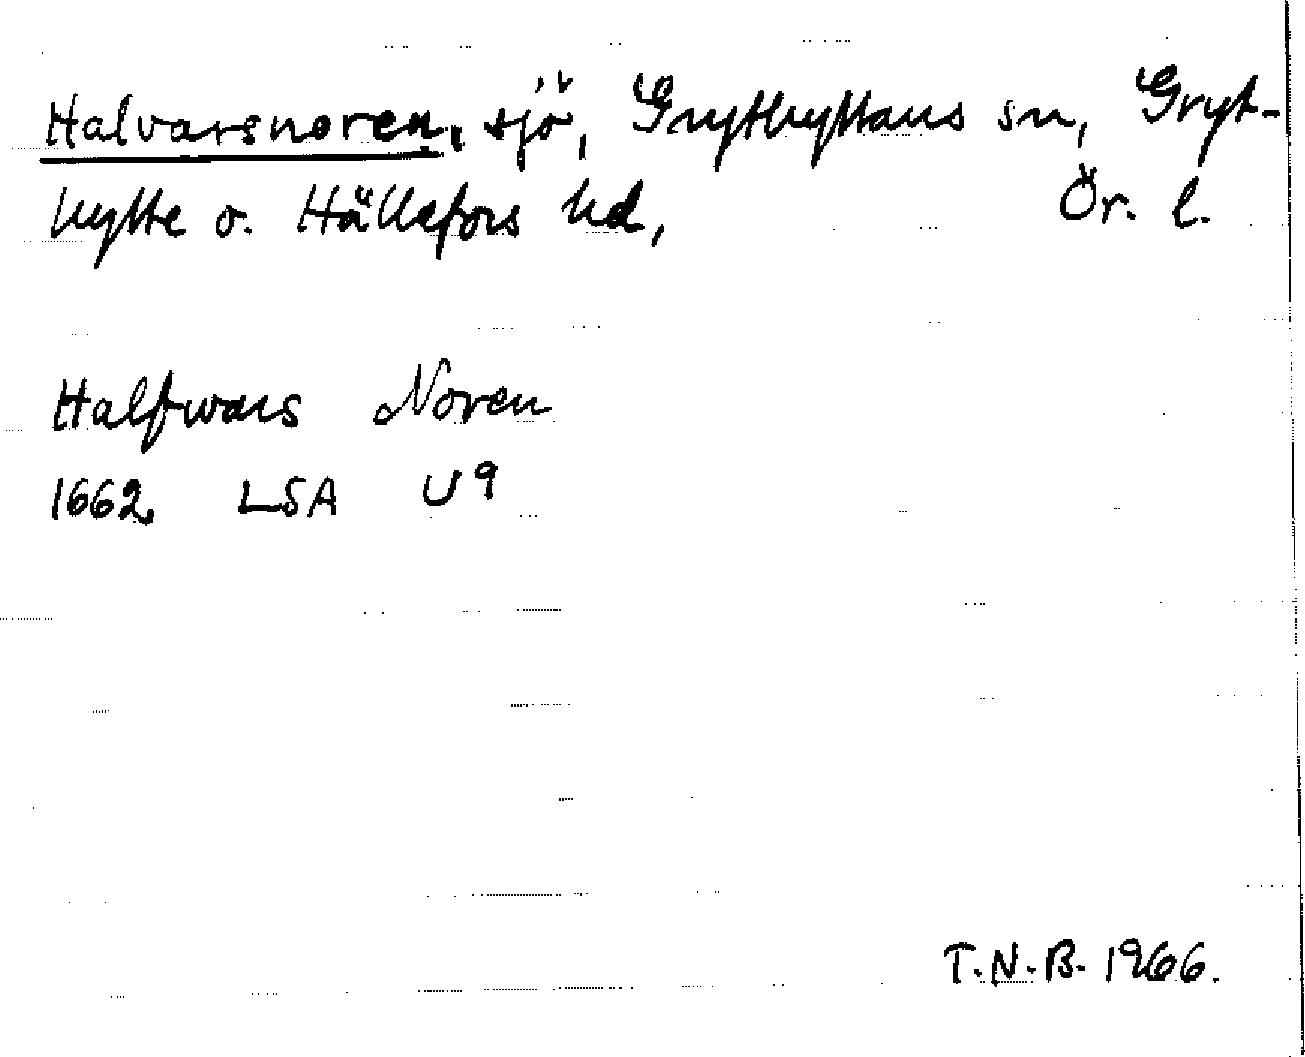 Halvarsnoren, sjö, Grythyttans sn, Gryt-
hytte o. Hällefors hd, Ör. l.
Halfwars Noren
1662 LSA U9
T.N.B. 1966.